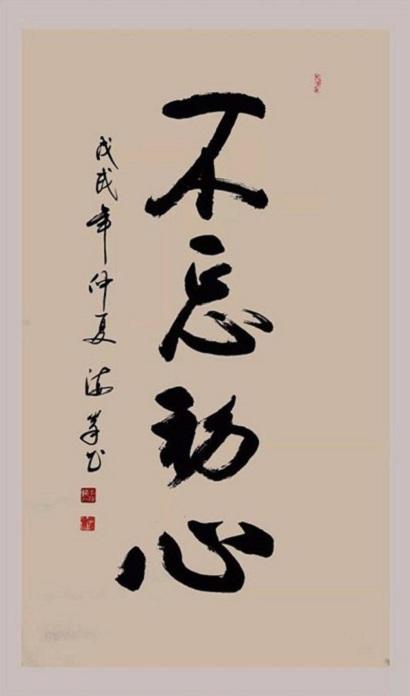 不忘初心
戊戌年仲夏海峯书